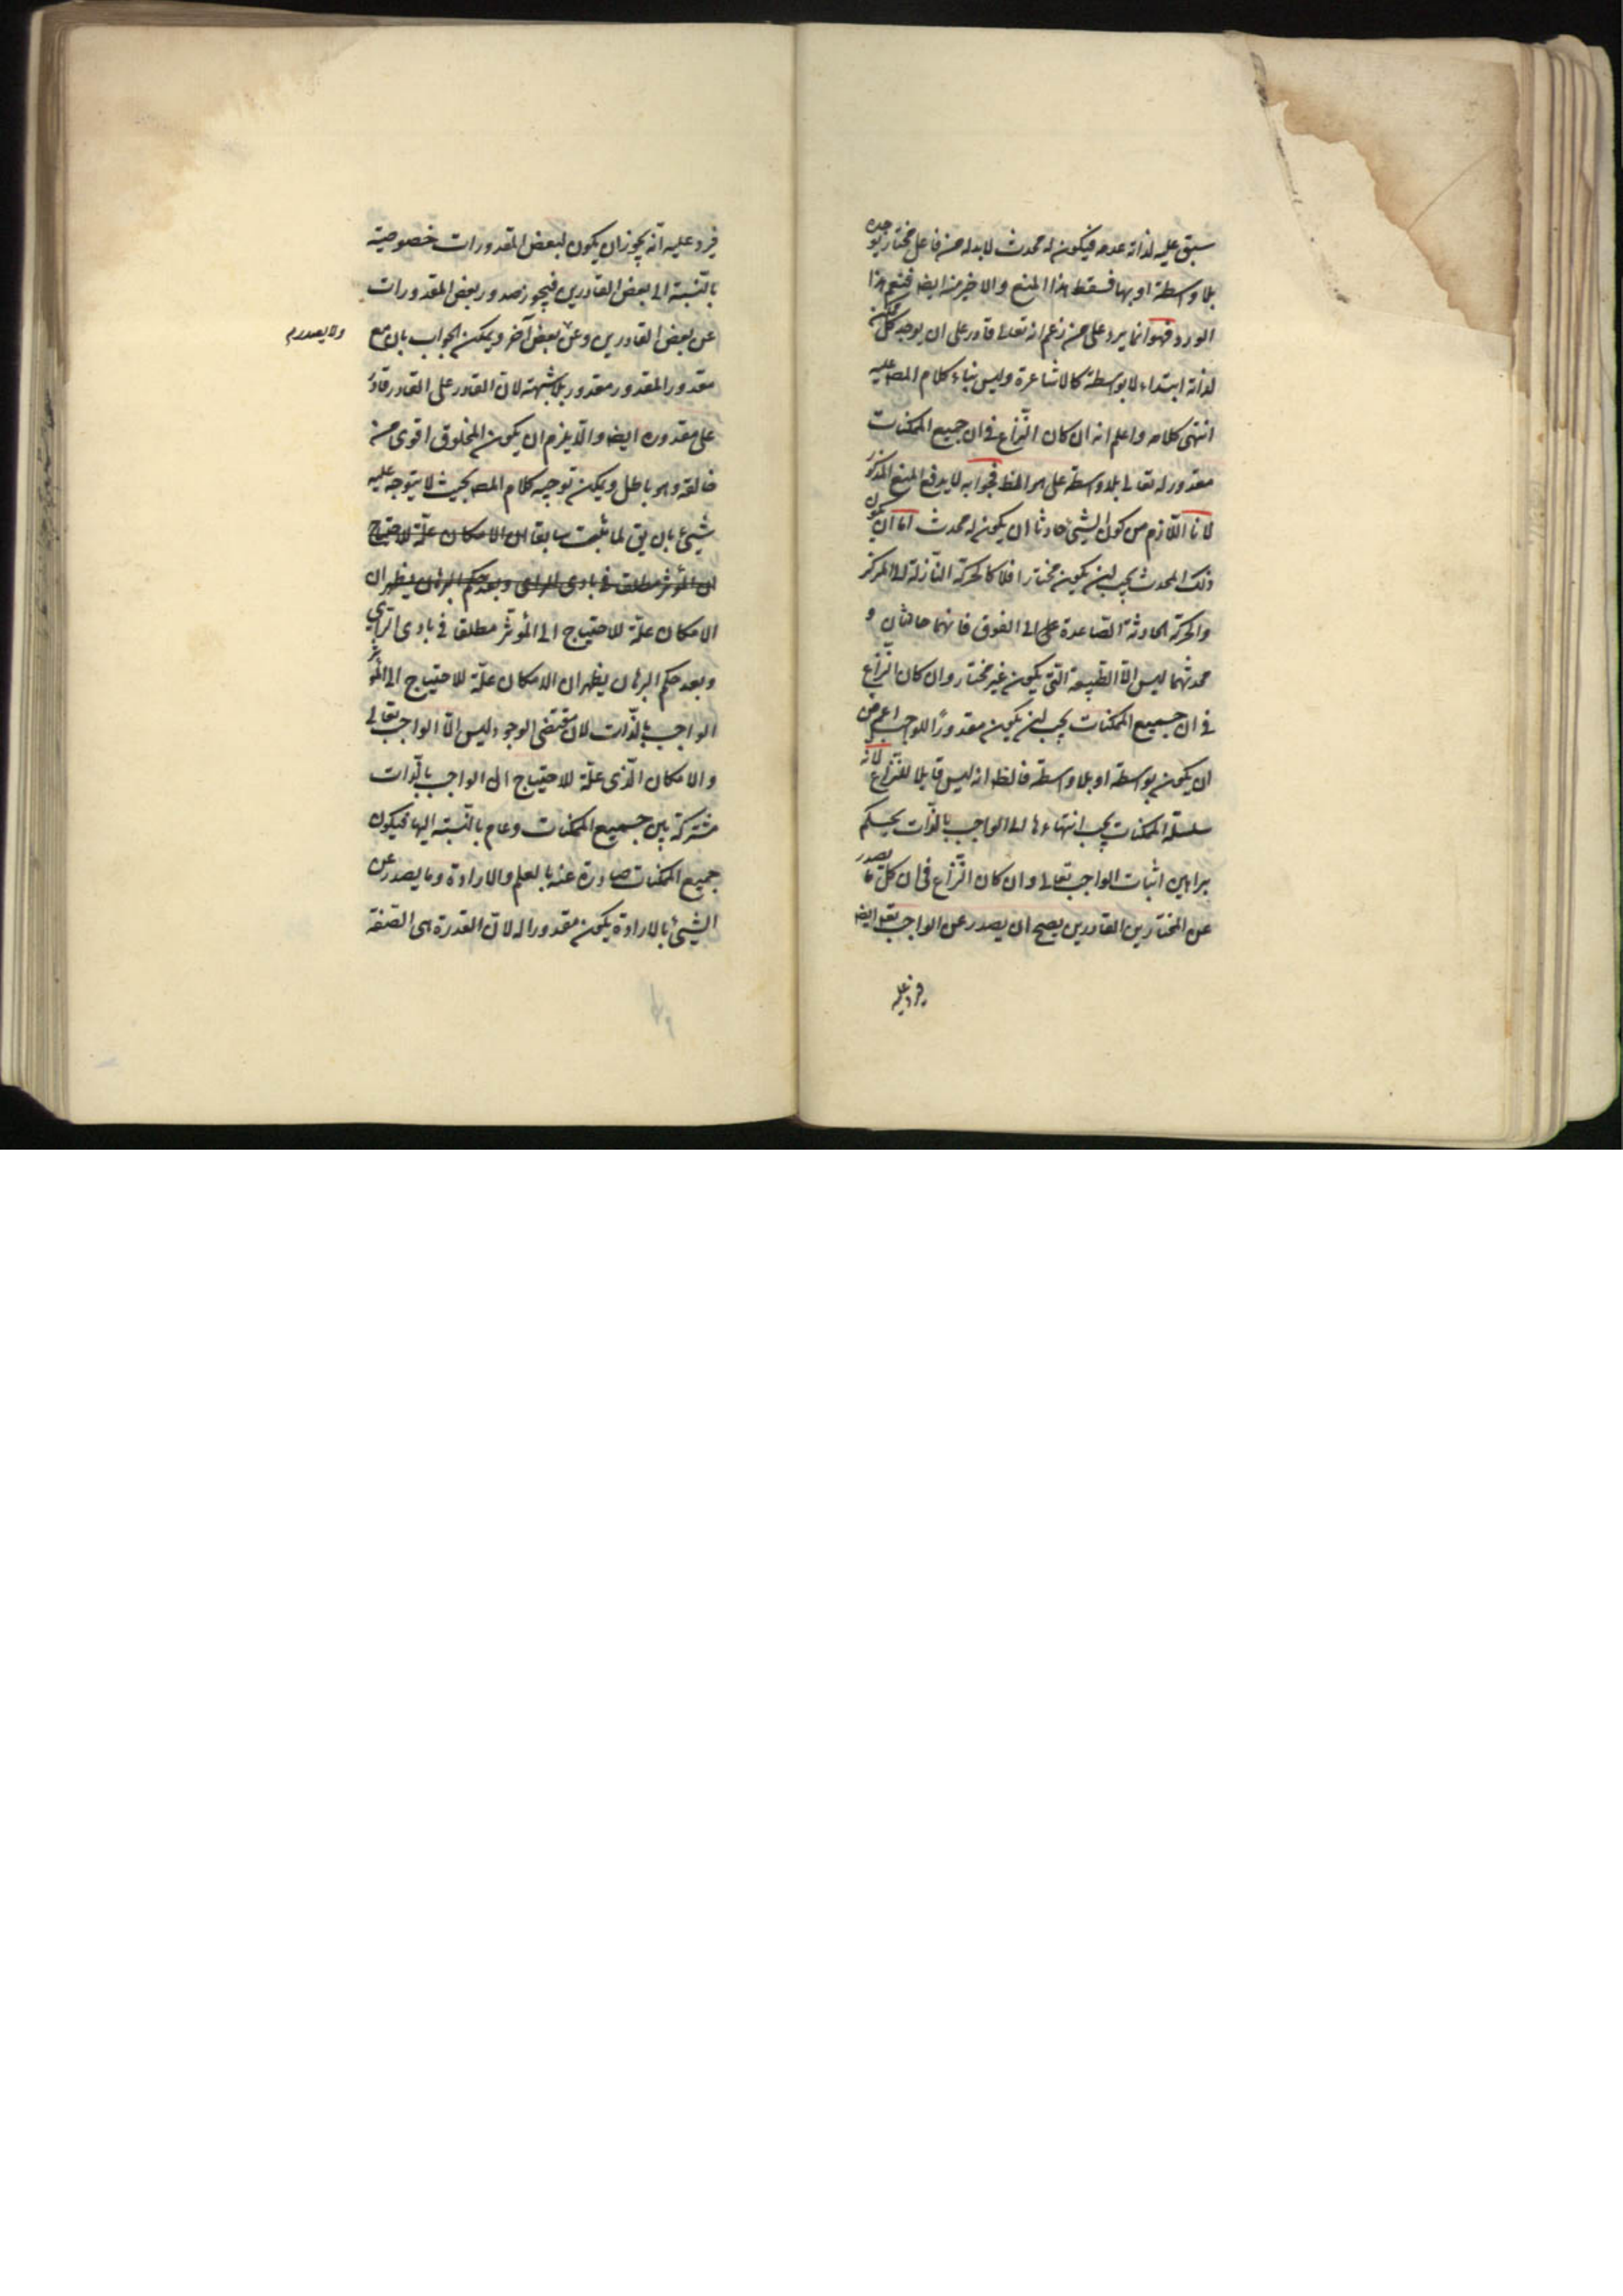 سبق عليه لذاته عدمه فيكون له محدث لا بد له من فاعل مختار يوجده
بلا واسطة او بها فسقط هذا المنع والاخير منه ايضا فنعم هذا
الورود فهو انما يرد على من زعم انه تعالى قادر على ان يوجد كل ممكن
لذاته ابتداء لا بواسطة كالاشاعرة وليس بناء كلام المصـ عليه
انتهى كلامه واعلم انه ان كان النزاع في ان جميع الممكنات
مقدور له تعالى بلا واسطة على هو الظ فجوابه لا يدفع المنع المذكور
لانا اللازم من كون الشيئ حادثا ان يكون له محدث اما ان يكون
ذلك المحدث يجب لـن يكون مختارا فلا كالحركة النازلة الى المركز
والحركة الحادثة الصاعدة على الى الفوق فانهما حادثان و
محدثهما ليس الا الطبيعة التي يكون غير مختار وان كان النزاع
في ان جميع الممكنات يجب لـن يكون مقدورًا للواجب اعم من
ان يكون بواسطة او بلا واسطة فالظ انه ليس قابلا للنزاع لانه
سلسلة الممكنات يجب انتهاءها الى الواجب بالذات بحكم
براهين اثبات الواجب تعالى وان كان النزاع في ان كل ما يصدر
عن المختارين القادرين يصح ان يصدر عن الواجب تعـ ايضا
فيرد عليه
فيرد عليه انه يجوز ان يكون لبعض المقدورات خصوصية
بالنسبة الى بعض القادرين فيجوز صدور بعض المقدورات
عن بعض القادرين وعن بعض آخر ويمكن الجواب بان مع
ولا يصدر
مقدور المقدور مقدور بلا شبهة لان القادر على القادر قادر
على مقدوره ايضا والا يلزم ان يكون المخلوق اقوى من
خالقه وهو باطل ويمكن توجيه كلام المصـ بحيث لا يتوجه عليه
شيئ بان يق لما ثبت سابقا ان الامكان علة للاحتياج
الى المؤثر مطلقا في بادى الراى وبعد حكم البرهان يظهر ان
الامكان علة للاحتياج الى المؤثر مطلقا في بادى الراي
وبعد حكم البرهان يظهر ان الامكان علة للاحتياج الى المؤثر
الواجب بالذات لان مقتضى الوجود ليس الا الواجب تعالى
والامكان الذى علة للاحتياج الى الواجب بالذات
مشتركة بين جميع الممكنات وعام بالنسبة اليها فيكون
جميع الممكنات صادرة عنه بالعلم والارادة وما يصدر عن
الشيئ بالارادة يكون مقدورا له لان القدرة هى الصفة